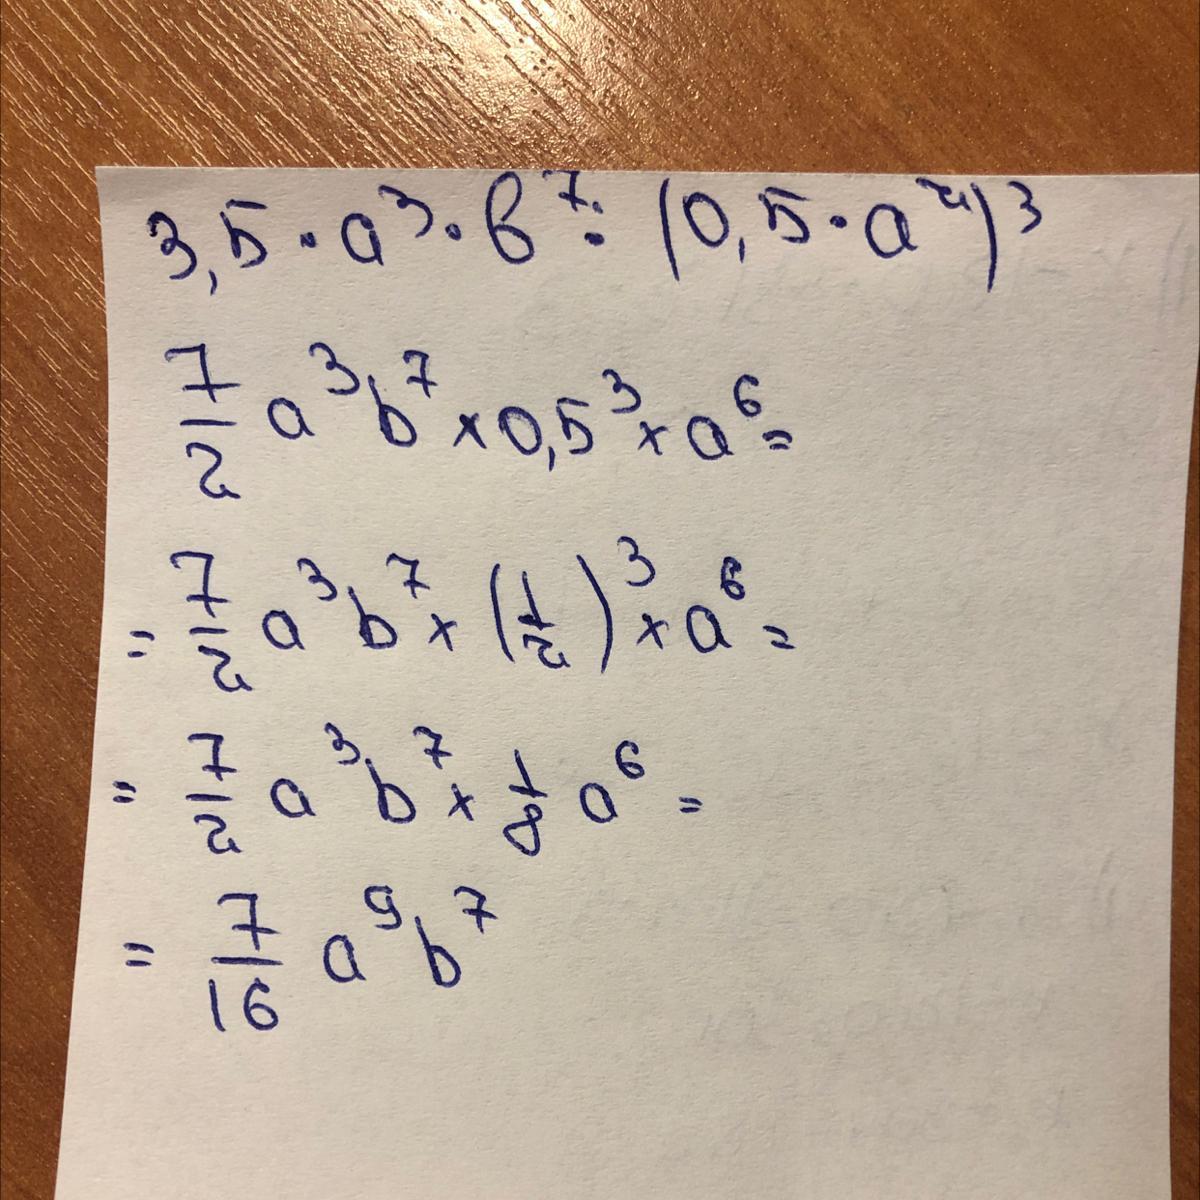 3,5 · a³ · b⁷ · (0,5 · a²)³
7/2 a³b⁷ × 0,5³ × a⁶ =
= 7/2 a³b⁷ × (1/2)³ × a⁶ =
= 7/2 a³b⁷ × 1/8 a⁶ =
= 7/16 a⁹b⁷